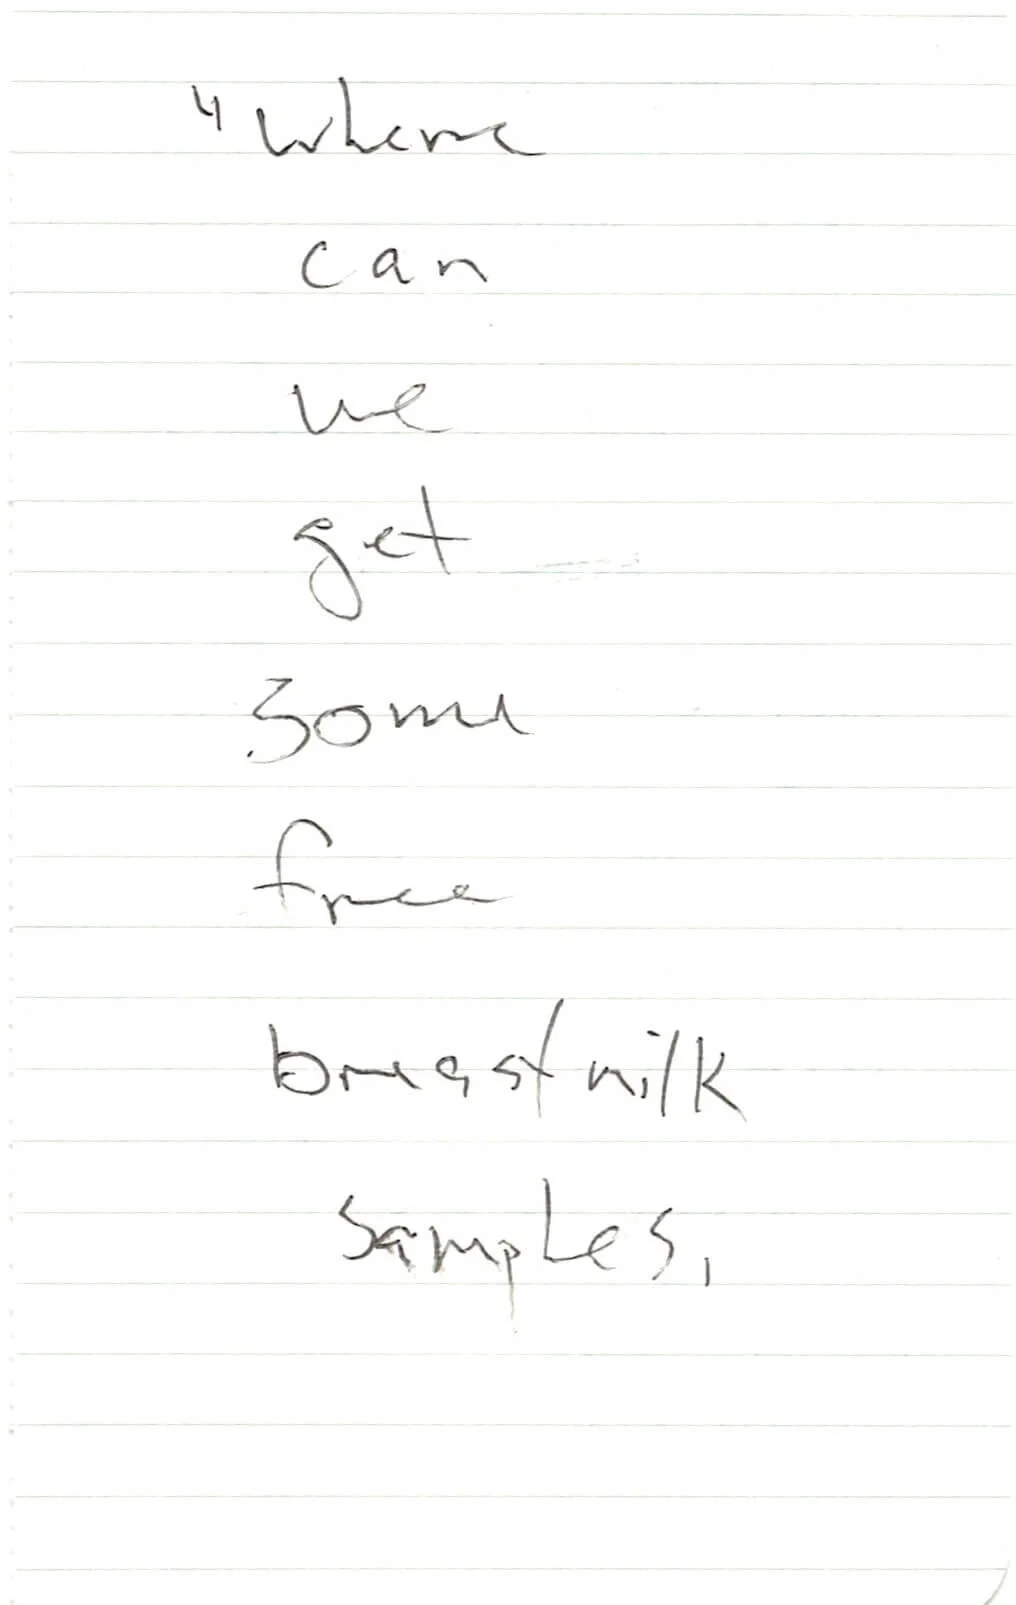 "Where
can
we
get
some
free
breastmilk
samples,